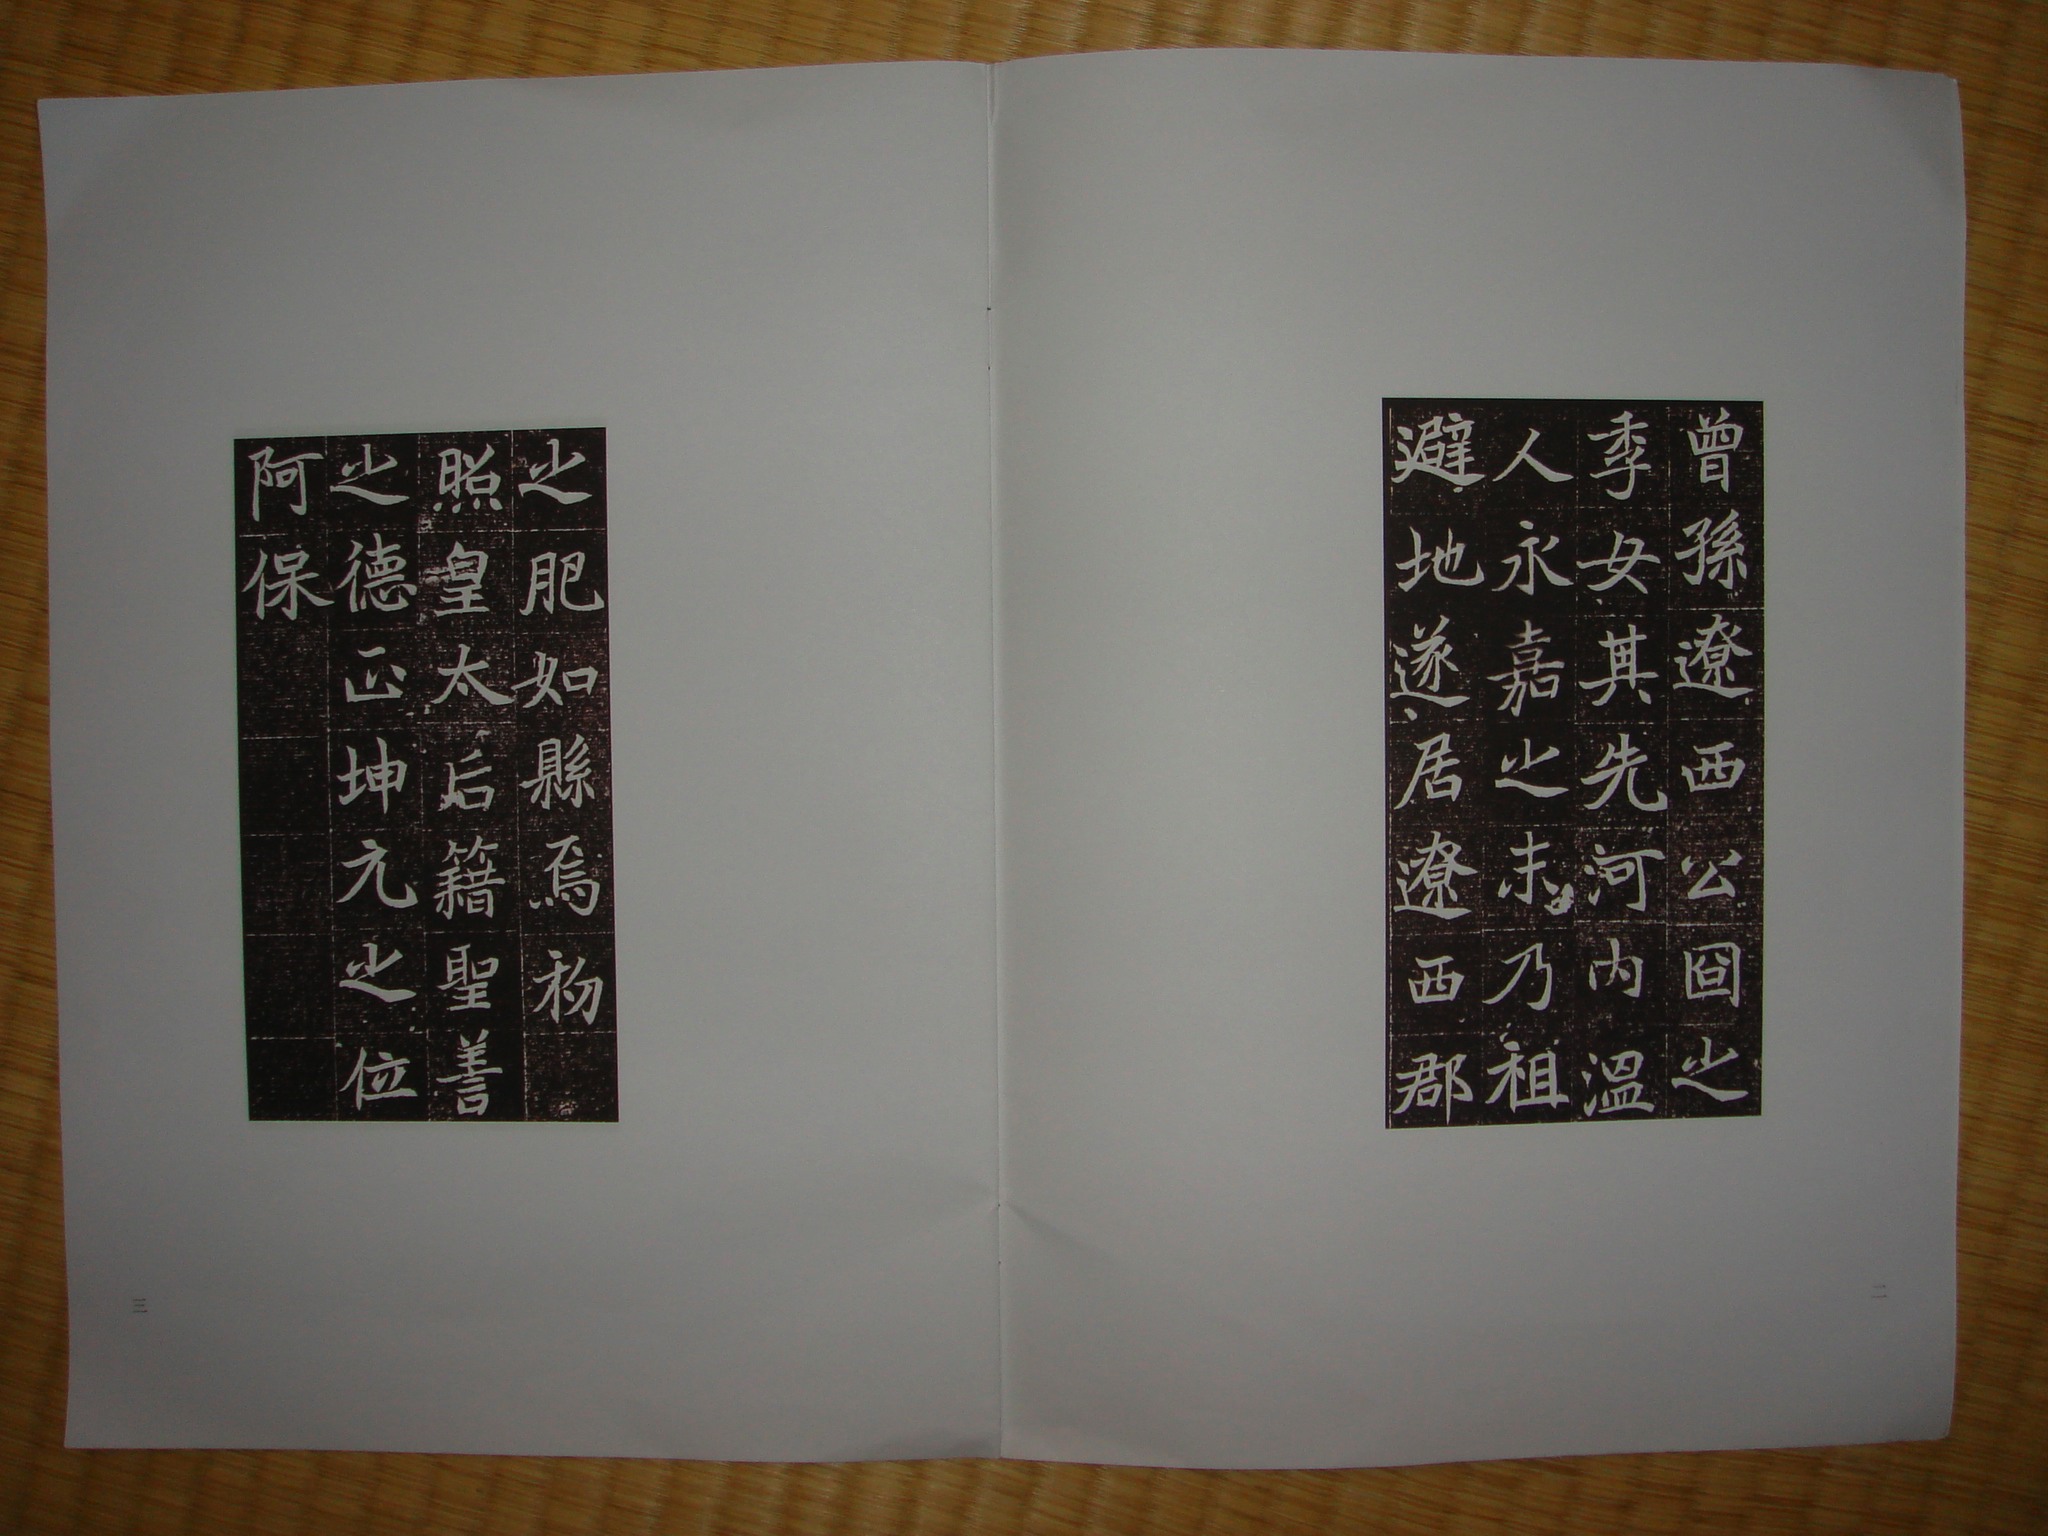 曾孫遼西公囧之
季女其先河內溫
人永嘉之末乃祖
避地遂居遼西郡
二
之肥如縣焉初
照皇太后籍聖善
之德正坤元之位
阿保
三